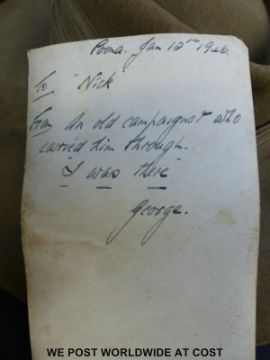 Poona. Jan 10th 1946.
To "Nick"
From An old campaigner who
carried him through.
"I was there"
George.
WE POST WORLDWIDE AT COST